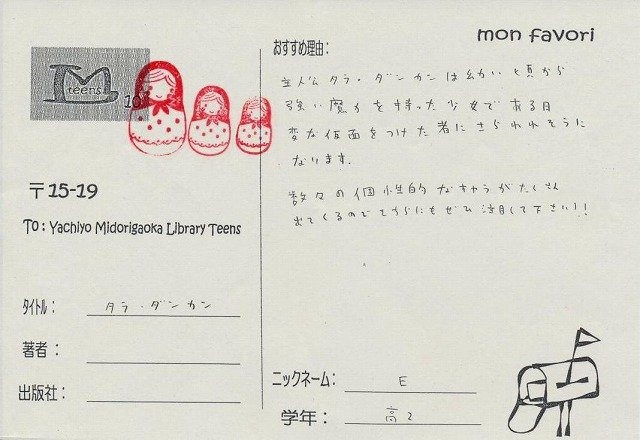 mon favori
おすすめ理由：
主人公タラ・ダンカンは幼い頃から
強い魔力を持った少女である日
変な仮面をつけた者にさらわれそうに
なります。
数々の個性的なキャラがたくさん
出てくるのでそちらにもぜひ注目して下さい!!
TM
teens
10
〒15-19
TO : Yachiyo Midorigaoka Library Teens
タイトル： タラ・ダンカン
著者：
出版社：
ニックネーム： E
学年： 高2